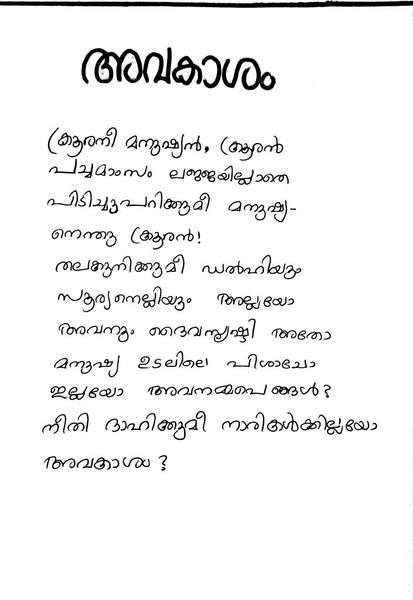 അവകാശം
ക്രൂരനീ മനുഷ്യൻ, ക്രൂരൻ
പച്ചമാംസം ലജ്ജയില്ലാതെ
പിടിച്ചുപറിക്കുമീ മനുഷ്യ-
നെന്തു ക്രൂരൻ!
തലകുനിക്കുമീ ഡൽഹിയും
സൂര്യനെല്ലിയും അല്ലയോ
അവനും ദൈവസൃഷ്ടി അതോ
മനുഷ്യ ഉടലിലെ പിശാചോ
ഇല്ലയോ അവനമ്മപെങ്ങൾ?
നീതി ദാഹിക്കുമീ നാരികൾക്കില്ലയോ
അവകാശം ?